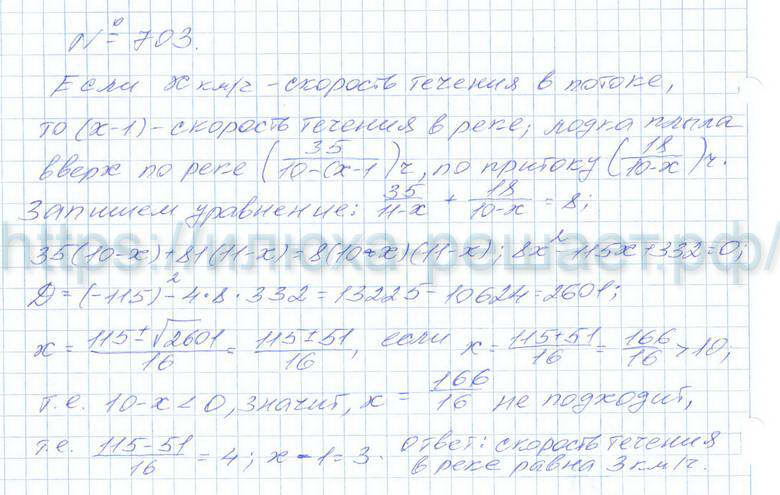 № 703.
Если x км/ч - скорость течения в потоке,
то (x-1) - скорость течения в реке; лодка плыла
вверх по реке (35/10-(x-1) ч, по притоку (18/10-x) ч.
Запишем уравнение: 35/11-x + 18/10-x = 8;
35(10-x)+81(11-x)=8(10-x)(11-x); 8x²-115x+332=0;
https://илюха-решает.рф/
D=(-115)²-4·8·332=13225-10624=2601;
x = 115±√2601/16 = 115±51/16, если x = 115+51/16 = 166/16 > 10;
т.е. 10-x<0, значит, x = 166/16 не подходит,
т.е. 115-51/16 = 4; x-1=3. Ответ: скорость течения
в реке равна 3 км/ч.